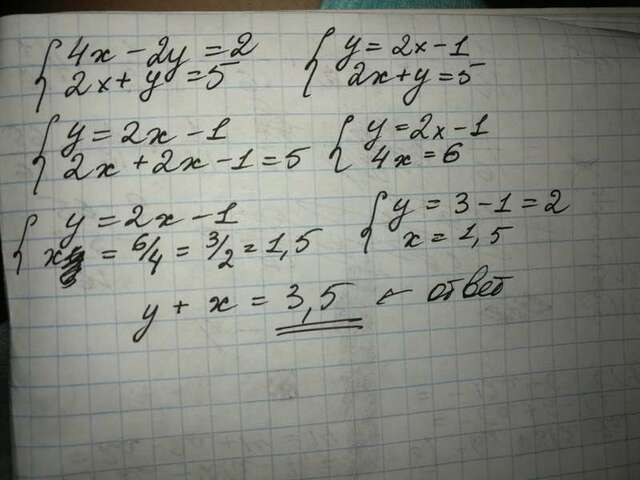 { 4x - 2y = 2
2x + y = 5
{ y = 2x - 1
2x + y = 5
{ y = 2x - 1
2x + 2x - 1 = 5
{ y = 2x - 1
4x = 6
{ y = 2x - 1
x = 6/4 = 3/2 = 1,5
{ y = 3 - 1 = 2
x = 1,5
y + x = 3,5 ← ответ